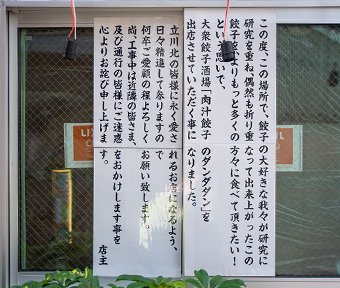 この度、この場所で、餃子の大好きな我々が研究に
研究を重ね、偶然も折り重なって出来上がったこの
餃子を、よりもっと多くの方々に食べて頂きたい！
という思いで、
大衆餃子酒場「肉汁餃子のダンダダン」を
出店させていただく事になりました。
立川北の皆様に永く愛されるお店になるよう、
日々精進して参りますので
何卒ご愛顧の程よろしくお願い致します。
尚、工事中は近隣の皆さま、
及び通行の皆様にご迷惑をおかけします事を
心よりお詫び申し上げます。
店主